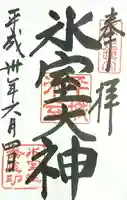 奉拝
氷室大神
平成卅年六月四日